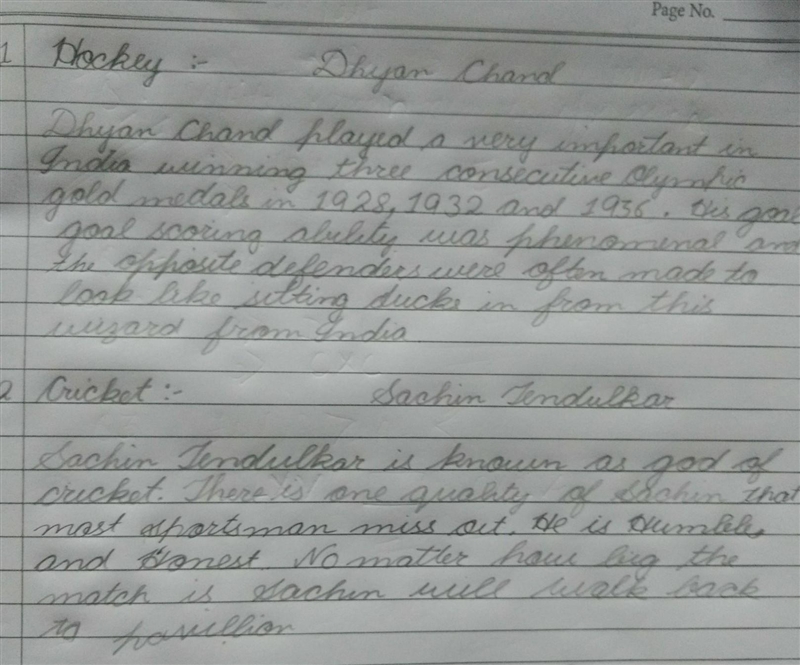 Page No.
1 Hockey :- Dhyan Chand
Dhyan Chand played a very important in
India winning three consecutive Olympic
gold medals in 1928, 1932 and 1936. His goal
goal scoring ability was phenomenal and
the opposite defenders were often made to
look like sitting ducks in from this
wizard from India
2 Cricket :- Sachin Tendulkar
Sachin Tendulkar is known as god of
cricket. There is one quality of Sachin that
most sportsman miss out. He is Humble,
and Honest. No matter how big the
match is Sachin will walk back
to pavillion